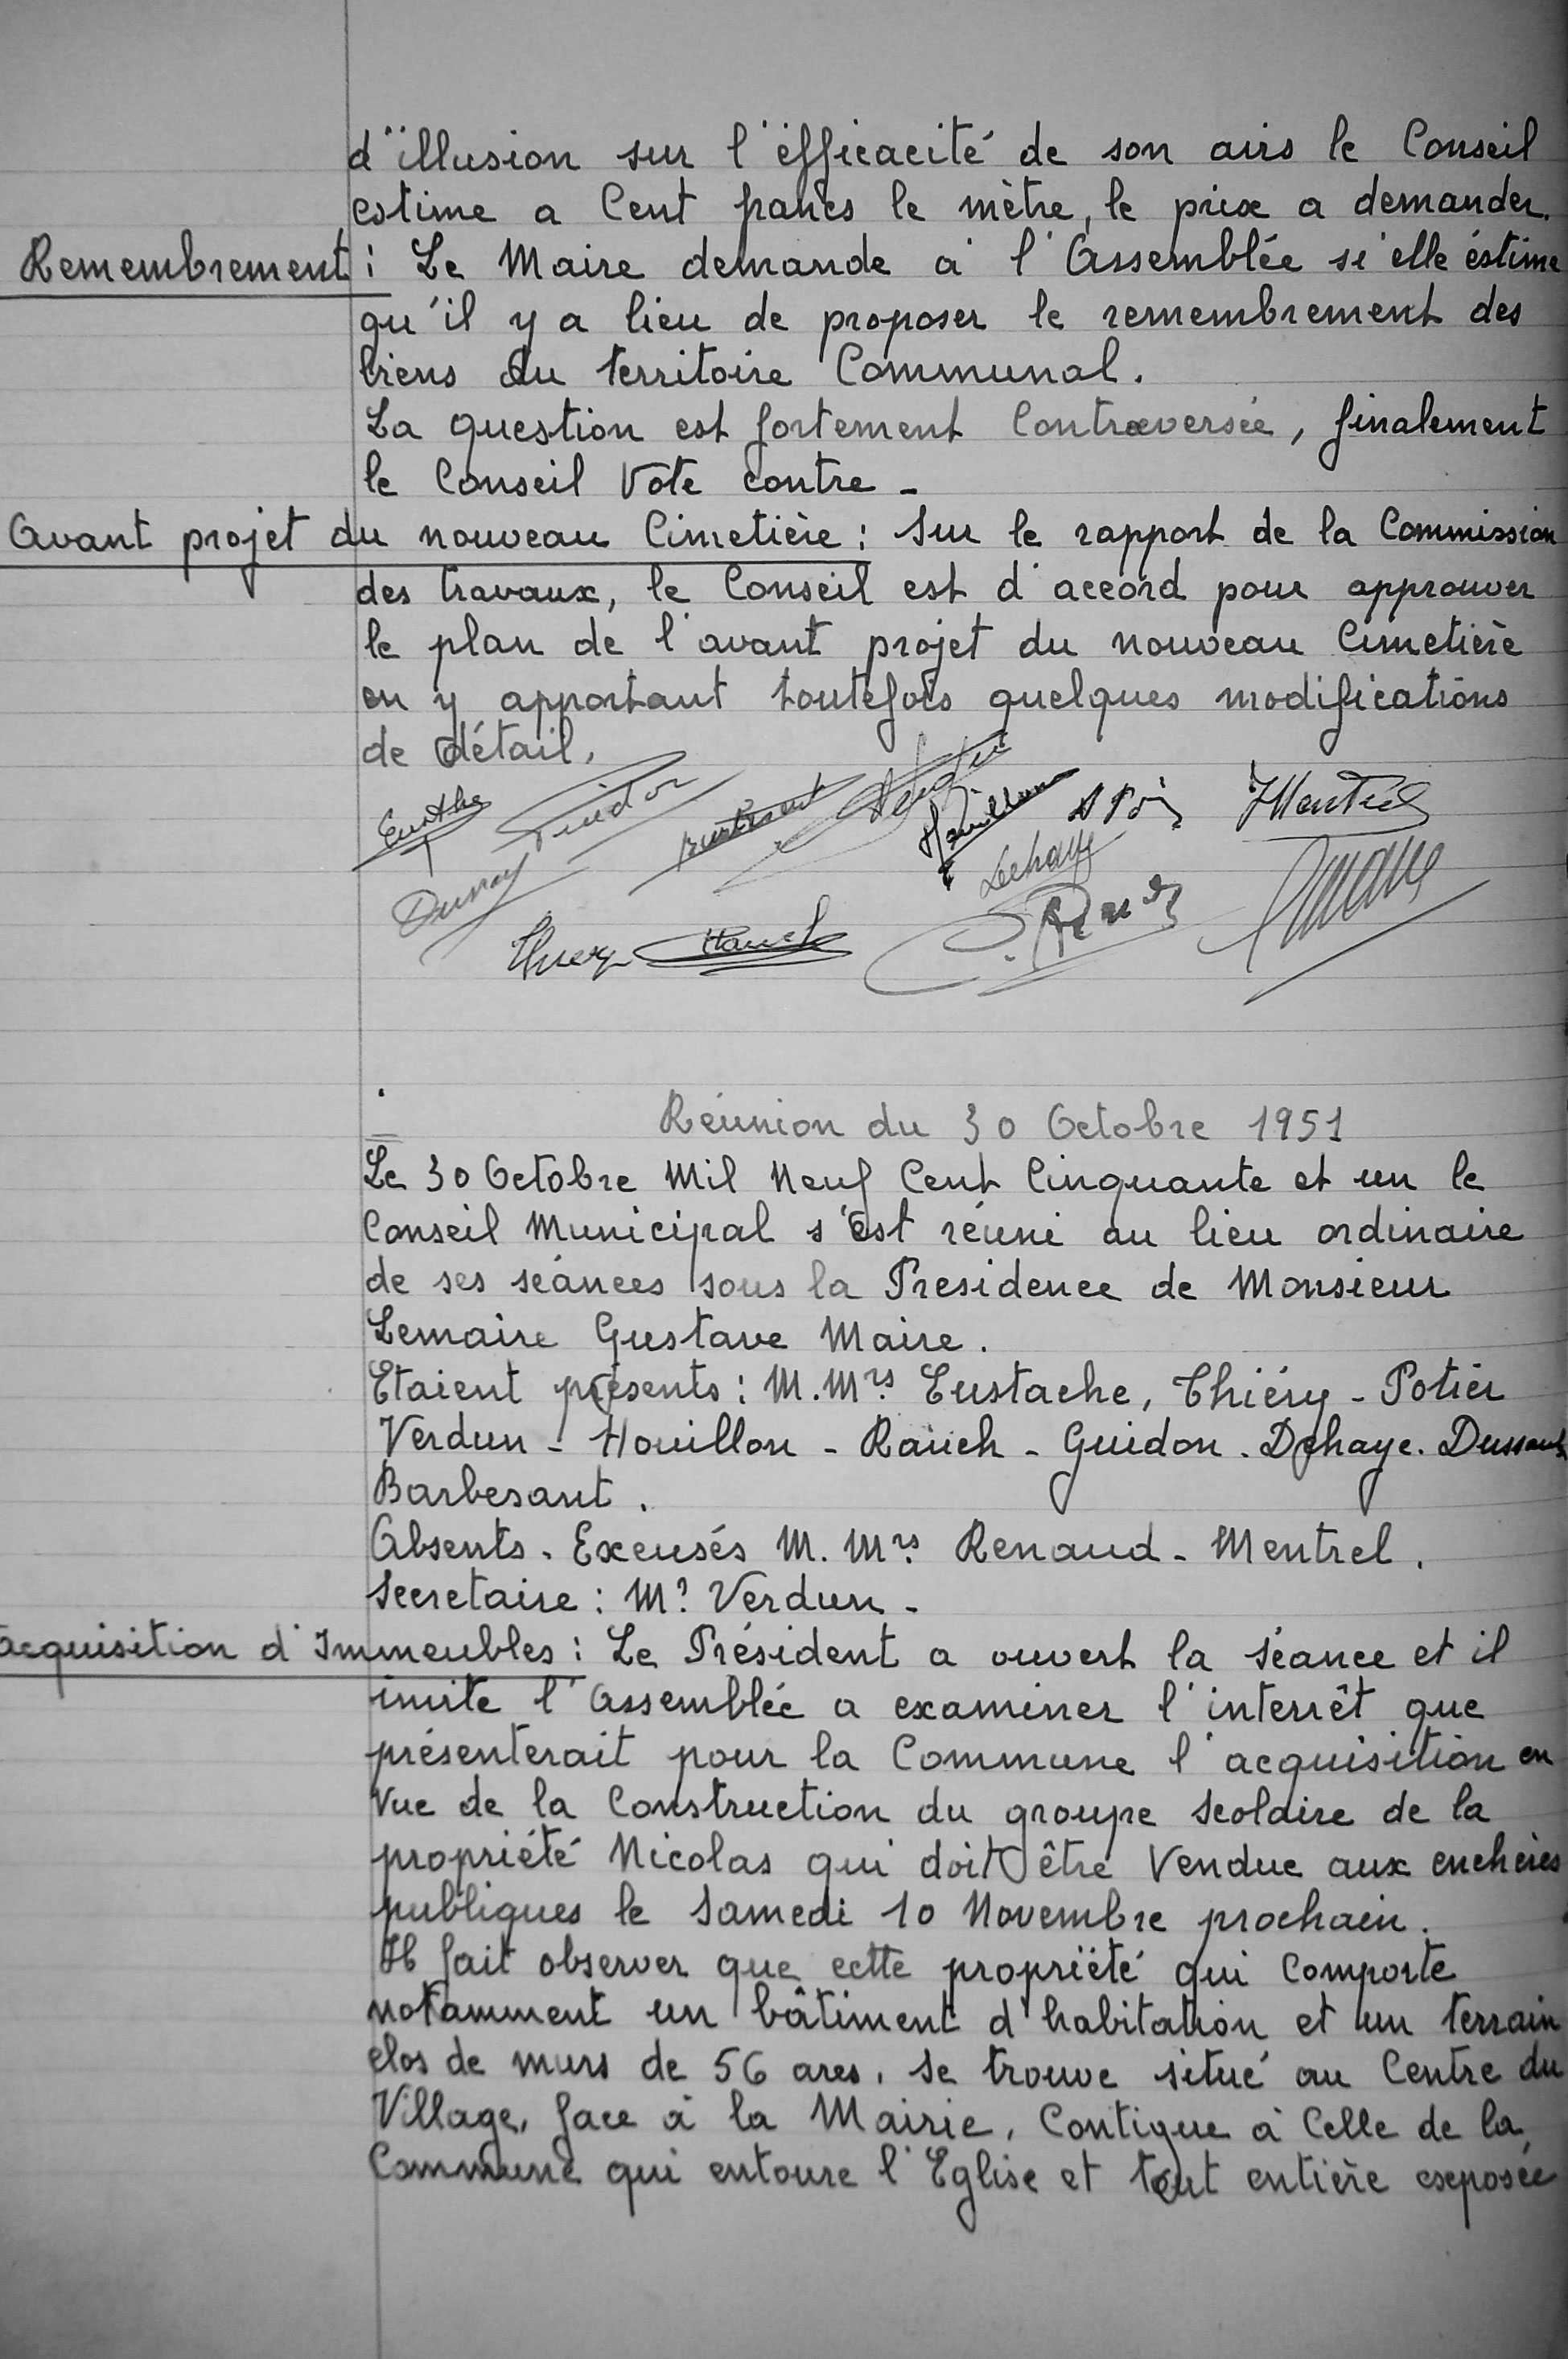 d'illusion sur l'éfficacité de son airs le Conseil
estime a Cent francs le mètre, le prix a demander.
Remembrement : Le Maire demande à l'Assemblée si elle éstime
qu'il y a lieu de proposer le remembrement des
biens du territoire Communal.
La question est fortement Controversée, finalement
le Conseil Vote contre -
Avant projet du nouveau Cimetière : Sur le rapport de la Commission
des travaux, le Conseil est d'accord pour approuver
le plan de l'avant projet du nouveau Cimetière
en y apportant toutefois quelques modifications
de détail.
Réunion du 30 Octobre 1951
Le 30 Octobre Mil Neuf Cent Cinquante et un le
Conseil Municipal s'est réuni au lieu ordinaire
de ses séances sous la Presidence de Monsieur
Lemaire Gustave Maire.
Etaient présents : M.Mrs Eustache, Thiéry - Potier
Verdun - Houillon - Rauch - Guidon - Dehaye. Dussault
Barbesant.
Absents - Excusés M. Mrs Renaud - Mentrel.
Secretaire : Mr Verdun -
Acquisition d'Immeubles : Le Président a ouvert la séance et il
invite l'Assemblée a examiner l'interrêt que
présenterait pour la Commune l'acquisition en
Vue de la Construction du groupe scolaire de la
propriété Nicolas qui doit être Vendue aux enchères
publiques le Samedi 10 Novembre prochain.
Il fait observer que cette propriété qui Comporte
notamment un bâtiment d'habitation et un terrain
clos de murs de 56 ares, se trouve situé au Centre du
Village, face à la Mairie, Contigue à Celle de la
Commune qui entoure l'Eglise et tout entière exposée